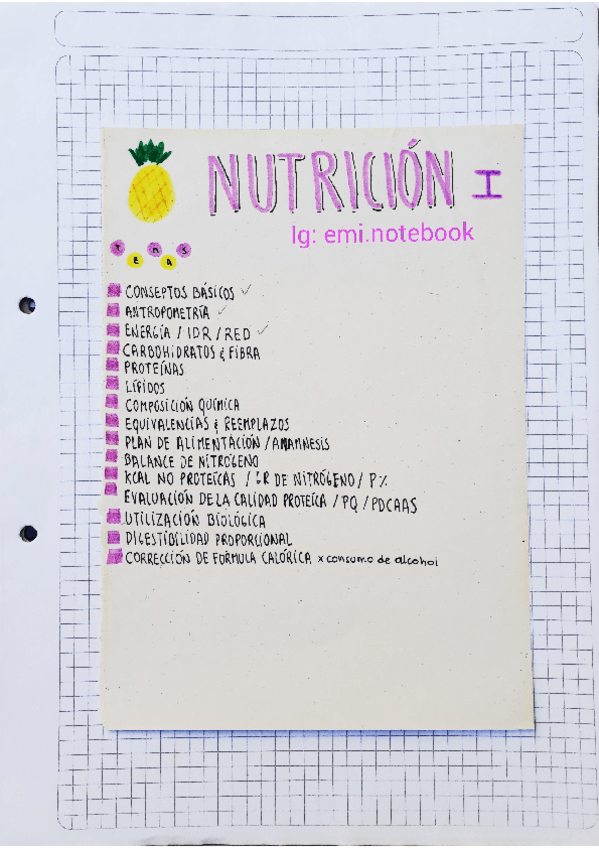 NUTRICIÓN I
Ig: emi.notebook
TEMAS
CONSEPTOS BÁSICOS ✓
ANTROPOMETRÍA ✓
ENERGÍA / IDR / RED ✓
CARBOHIDRATOS & FIBRA
PROTEÍNAS
LÍPIDOS
COMPOSICIÓN QUÍMICA
EQUIVALENCIAS & REEMPLAZOS
PLAN DE ALIMENTACIÓN / ANAMNESIS
BALANCE DE NITRÓGENO
KCAL NO PROTEICAS / GR DE NITRÓGENO / P%
EVALUACIÓN DE LA CALIDAD PROTEICA / PQ / PDCAAS
UTILIZACIÓN BIOLÓGICA
DIGESTIBILIDAD PROPORCIONAL
CORRECCIÓN DE FORMULA CALÓRICA x consumo de alcohol